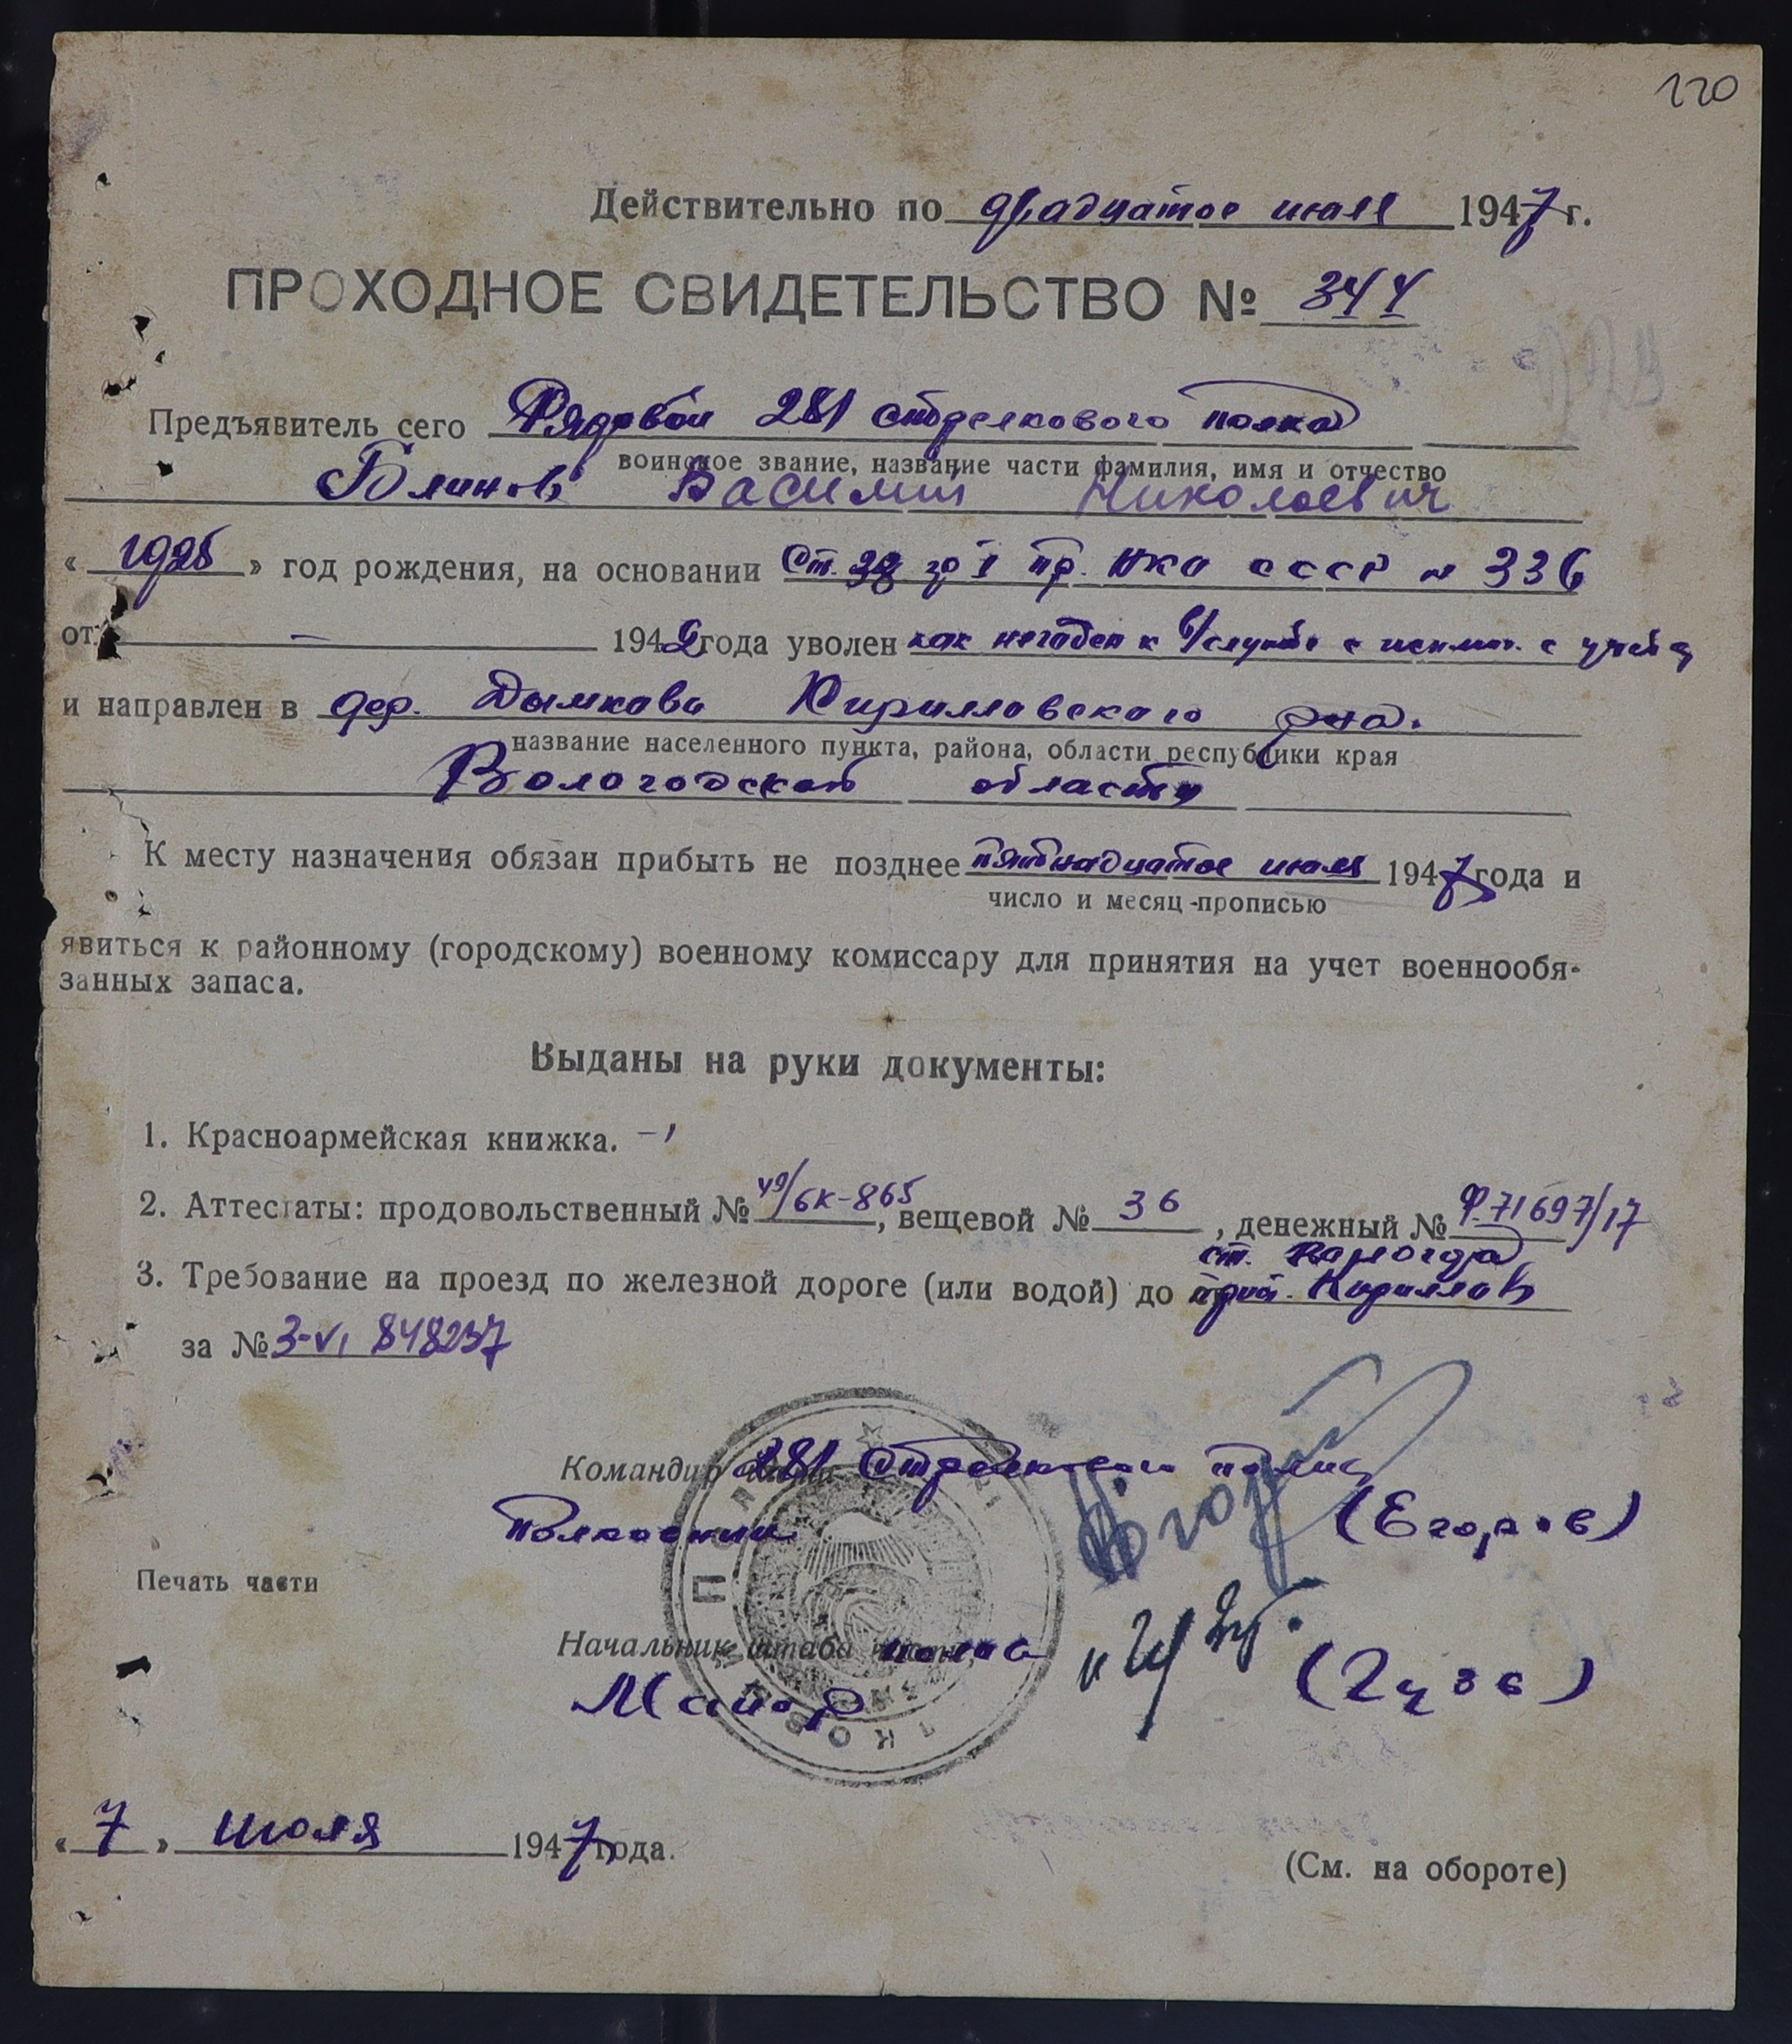 120
Действительно по двадцатое июля 1947 г.
ПРОХОДНОЕ СВИДЕТЕЛЬСТВО № 344
Предъявитель сего Рядовой 281 стрелкового полка
воинское звание, название части фамилия, имя и отчество
Блинов Василий Николаевич
« 1925 » год рождения, на основании Ст. гр I пр. НКО СССР № 336
от — 1942 года уволен как негоден к в/службе с исключ. с учета
и направлен в дер. Дымково Кирилловского р-на.
название населенного пункта, района, области республики края
Вологодской области
К месту назначения обязан прибыть не позднее пятнадцатое июля 1947 года и
число и месяц-прописью
явиться к районному (городскому) военному комиссару для принятия на учет военнообя-
занных запаса.
Выданы на руки документы:
1. Красноармейская книжка. —
2. Аттестаты: продовольственный № 49/6К-865, вещевой № 36, денежный № Ф.71697/17
ст. Вологда
3. Требование на проезд по железной дороге (или водой) до прист. Кириллов
за № 3-VI 848237
Командир 281 Стрелкового полка
Полковник (Егоров)
Печать части
Начальник штаба полка
Майор
« 7 » июля 1947 года.
(См. на обороте)